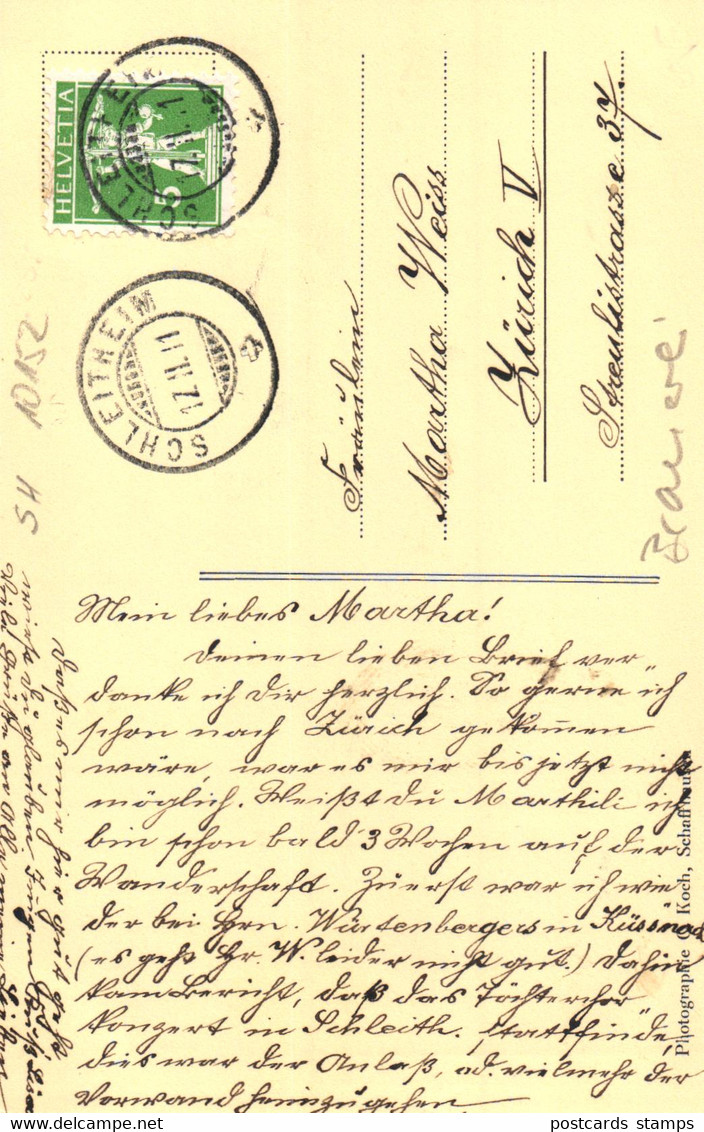 HELVETIA
5
SCHLEITHEIM
12.II.11
SCHLEITHEIM
12.II.11
SH 10152
Fräulein
Martha Weiss
Zürich V
Streulistrasse 37.
Mein liebes Martha!
Deinen lieben Brief ver-
danke ich Dir herzlich. So gerne ich
schon nach Zürich gekommen
wäre, war es mir bis jetzt nicht
möglich. Weißt du Marthili ich
bin schon bald 3 Wochen auf der
Wanderschaft. Zuerst war ich wie
der bei Hrn. Würtenbergers in Küssnach
(es geht Hr. W. leider nicht gut.) Dahin
kam Bericht, daß das Töchterchor
konzert in Schleith. stattfinde,
dies war der Anlaß, od. vielmehr der
Vorwand heimzugehen.
Daß es mir hier gut geht
wirst Du
Viele Grüße an alle
Photographie C. Koch, Schaffhausen
postcards stamps